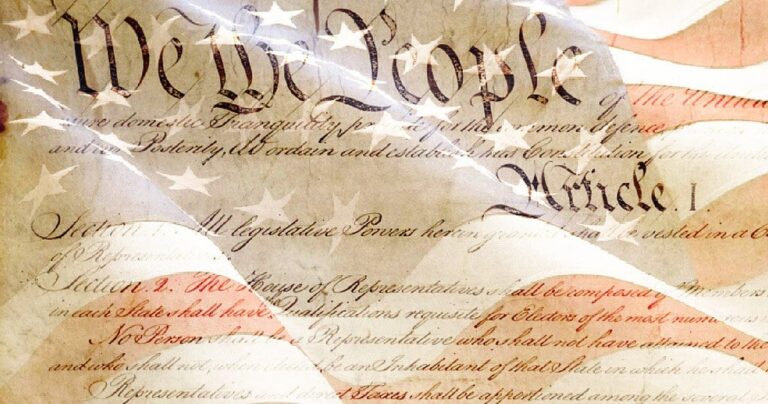 We the People of the United
sure domestic Tranquility, provide for the common defence,
and our Posterity, do ordain and establish this Constitution for the United
Article. I.
Section. 1. All legislative Powers herein granted shall be vested in a
of Representatives.
Section. 2. The House of Representatives shall be composed of Members
in each State shall have Qualifications requisite for Electors of the most numerous
No Person shall be a Representative who shall not have attained to the
and who shall not, when elected, be an Inhabitant of that State in which he shall
Representatives and direct Taxes shall be apportioned among the several